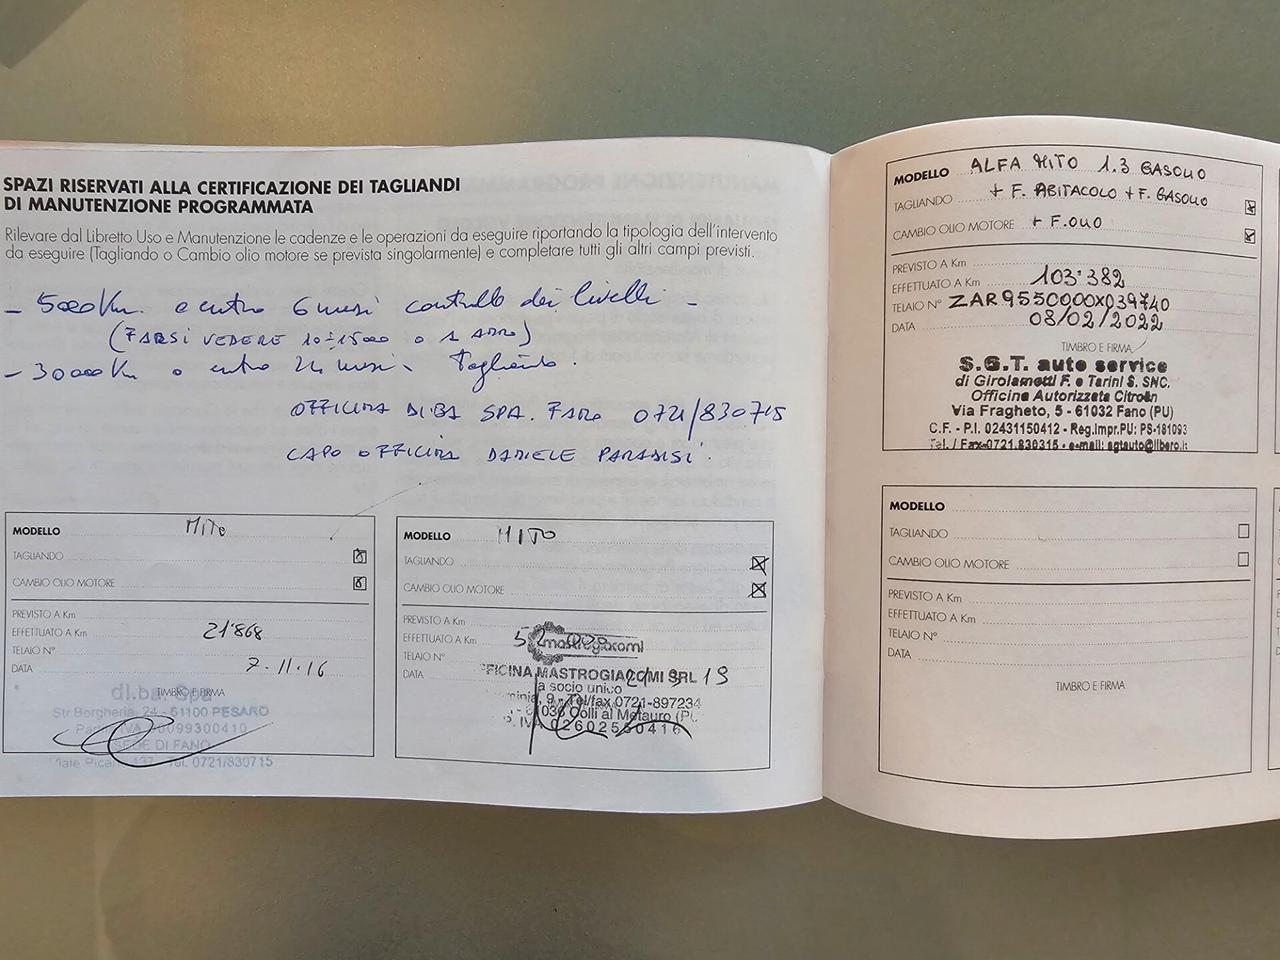 SPAZI RISERVATI ALLA CERTIFICAZIONE DEI TAGLIANDI
DI MANUTENZIONE PROGRAMMATA
Rilevare dal Libretto Uso e Manutenzione le cadenze e le operazioni da eseguire riportando la tipologia dell'intervento
da eseguire (Tagliando o Cambio olio motore se prevista singolarmente) e completare tutti gli altri campi previsti.
- 5000 Km. o entro 6 mesi controllo dei livelli -
(FARSI VEDERE 10÷15000 o 1 ANNO)
- 30000 Km o entro 24 mesi Tagliando.
OFFICINA DI.BA SPA. FANO 0721/830715
CAPO OFFICINA DANIELE PARADISI.
MODELLO MITO
TAGLIANDO
CAMBIO OLIO MOTORE
PREVISTO A Km
EFFETTUATO A Km 21'868
TELAIO N°
DATA 7-11-16
TIMBRO E FIRMA
di.ba. Spa
Str.Borgheria, 24 - 61100 PESARO
00099300410
SEDE DI FANO
Tel. 0721/830715
MODELLO MITO
TAGLIANDO
CAMBIO OLIO MOTORE
PREVISTO A Km
EFFETTUATO A Km
mastrogiacomi
TELAIO N°
DATA
OFFICINA MASTROGIACOMI SRL 19
a socio unico
9 - Tel/fax 0721-897234
Colli al Metauro
P. IVA 02602580416
MODELLO ALFA MITO 1.3 GASOLIO
TAGLIANDO + F. ABITACOLO + F. GASOLIO
CAMBIO OLIO MOTORE + F. OLIO
PREVISTO A Km
EFFETTUATO A Km 103'382
TELAIO N° ZAR9550000X039740
DATA 08/02/2022
TIMBRO E FIRMA
S.G.T. auto service
di Girolametti F. e Tarini S. SNC.
Officina Autorizzata Citroën
Via Fragheto, 5 - 61032 Fano (PU)
C.F. - P.I. 02431150412 - Reg.Impr.PU: PS-181093
Tel. / Fax 0721.830315 - e-mail: sgtauto@libero.it
MODELLO
TAGLIANDO
CAMBIO OLIO MOTORE
PREVISTO A Km
EFFETTUATO A Km
TELAIO N°
DATA
TIMBRO E FIRMA